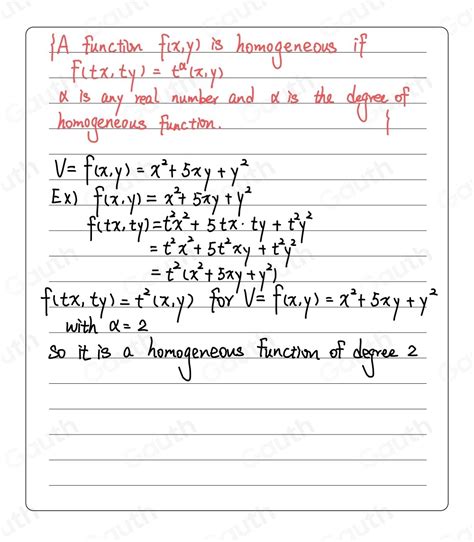 {A function f(x,y) is homogeneous if
f(tx,ty) = t^α(x,y)
α is any real number and α is the degree of
homogeneous function. }
V= f(x,y) = x²+ 5xy + y²
Ex) f(x,y) = x²+ 5xy + y²
f(tx,ty)=t²x²+ 5tx·ty + t²y²
= t²x²+5t²xy + t²y²
= t²(x²+5xy+y²)
f(tx,ty)=t²(x,y) for V= f(x,y)= x²+5xy+y²
with α=2
So it is a homogeneous function of degree 2
Gauth